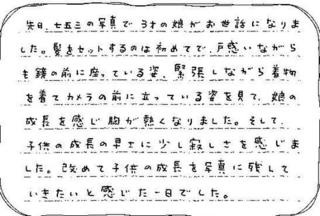 先日、七五三の写真で3才の娘がお世話になりま
した。髪をセットするのは初めてで、戸惑いながら
も鏡の前に座っている姿、緊張しながら着物
を着てカメラの前に立っている姿を見て、娘の
成長を感じ胸が熱くなりました。そして、
子供の成長の早さに少し寂しさを感じま
した。改めて子供の成長を写真に残して
いきたいと感じた一日でした。